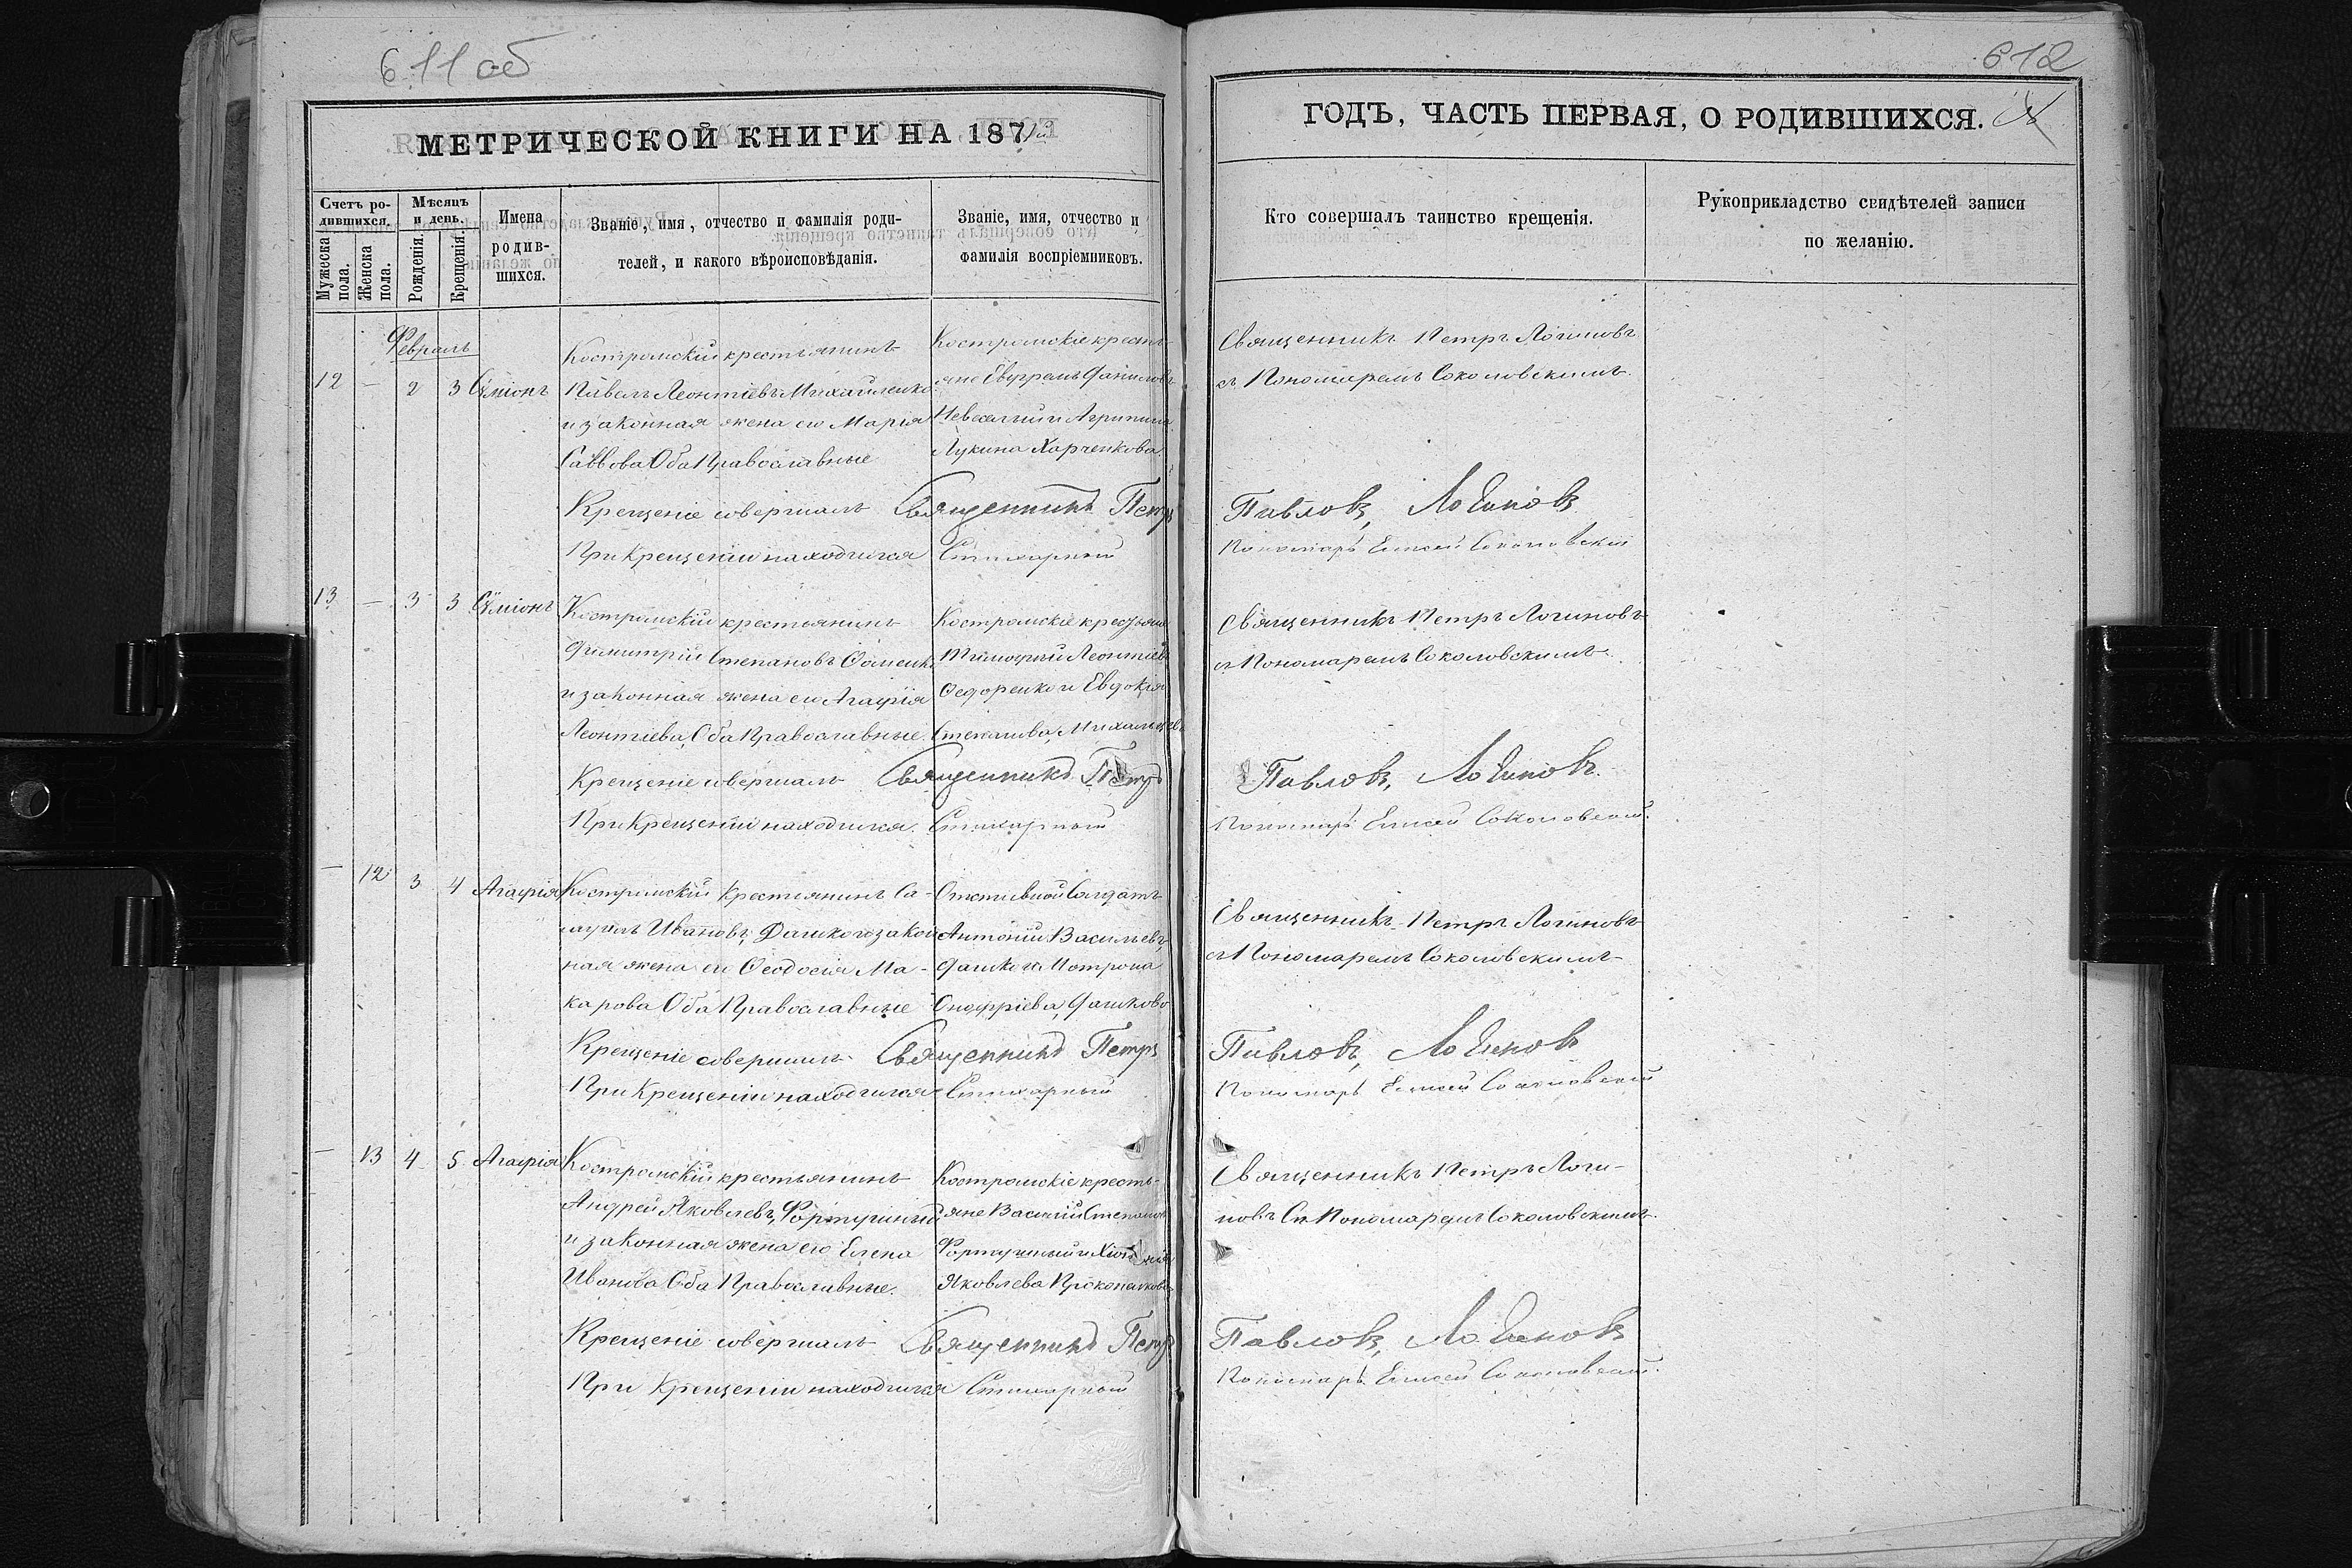 611 об
МЕТРИЧЕСКОЙ КНИГИ НА 187
Счетъ ро-
дившихся.
Мужеска пола.
Женска пола.
Мѣсяцъ
и день.
Рожденія.
Крещенія.
Имена
родив-
шихся.
Званіе, имя, отчество и фамилія роди-
телей, и какого вѣроисповѣданія.
Званіе, имя, отчество и
фамилія воспріемниковъ.
Февраль
12 — 2 3 Сѵміонъ
Костромскій крестьянинъ
Павелъ Леонтіевъ Михайленко
и законная жена его Марія
Саввова Оба Православные
Костромскіе кресть-
яне
и Агрипина
Лукина Харченкова
Крещеніе совершалъ Священникъ Петръ
При Крещеніи находился Стихарный
13 — 3 3 Сѵміонъ
Костромскій крестьянинъ
Димитрій Степановъ
и законная жена его Агафія
Леонтіева, Оба Православные.
Костромскіе крестьяне
Тимофей Леонтіевъ
Ѳедоренко и Евдокія
Крещеніе совершалъ Священникъ Петръ
При Крещеніи находился Стихарный
— 12 3 4 Агафія
Костромскій Крестьянинъ Са-
муилъ Ивановъ, Дашко и закон
ная жена его Ѳеодосія Ма-
карова Оба Православные
Отставной Солдатъ
Антоній Васильевъ,
Дашко и Матрона
Онофріева, Дашкова
Крещеніе совершалъ Священникъ Петръ
При Крещеніи находился Стихарный
— 13 4 5 Агафія
Костромскій крестьянинъ
Андрей Яковлевъ, Фортунный
и законная жена его Елена
Иванова Оба Православные.
Костромскіе кресть-
яне Василій Степановъ
Фортунный и
Яковлева
Крещеніе совершалъ Священникъ Петръ
При Крещеніи находился Стихарный
612
ГОДЪ, ЧАСТЬ ПЕРВАЯ, О РОДИВШИХСЯ.
Кто совершалъ таинство крещенія.
Рукоприкладство свидѣтелей записи
по желанію.
Священникъ Петръ Логиновъ
съ Пономаремъ Соколовскимъ
Павловъ, Логиновъ
Пономарь Елисей Соколовскій
Священникъ Петръ Логиновъ
съ Пономаремъ Соколовскимъ
Павловъ, Логиновъ.
Пономарь Елисей Соколовскій.
Священникъ Петръ Логиновъ
съ Пономаремъ Соколовскимъ
Павловъ, Логиновъ
Пономарь Елисей Соколовскій
Священникъ Петръ Логи-
новъ Съ Пономаремъ Соколовскимъ
Павловъ, Логиновъ
Пономарь Елисей Соколовскій.